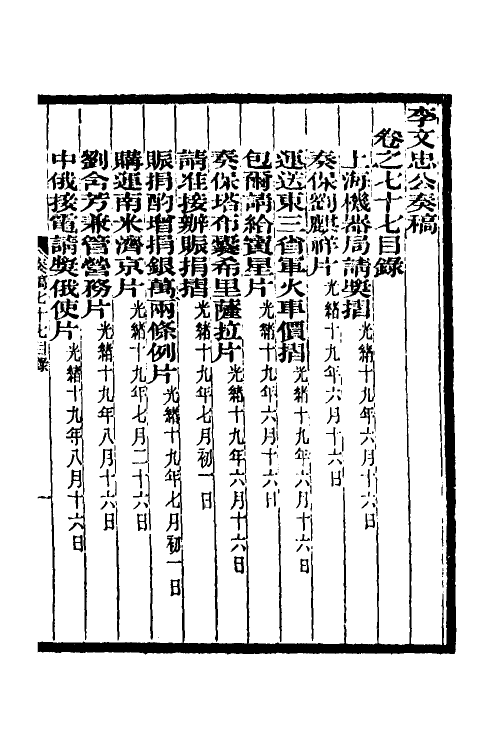 李文忠公奏稿
卷之七十七目錄
上海機器局請獎摺光緒十九年六月十六日
奏保劉麒祥片光緒十九年六月十六日
運送東三省軍火車價摺光緒十九年六月十六日
包爾請給寶星片光緒十九年六月十六日
奏保塔布囊希里薩拉片光緒十九年六月十六日
請准接辦賑捐摺光緒十九年七月初一日
賑捐酌增捐銀萬兩條例片光緒十九年七月初一日
購運南米濟京片光緒十九年七月二十六日
劉含芳兼管營務片光緒十九年八月十六日
中俄接電請獎俄使片光緒十九年八月十六日
奏稿七十七目錄
一